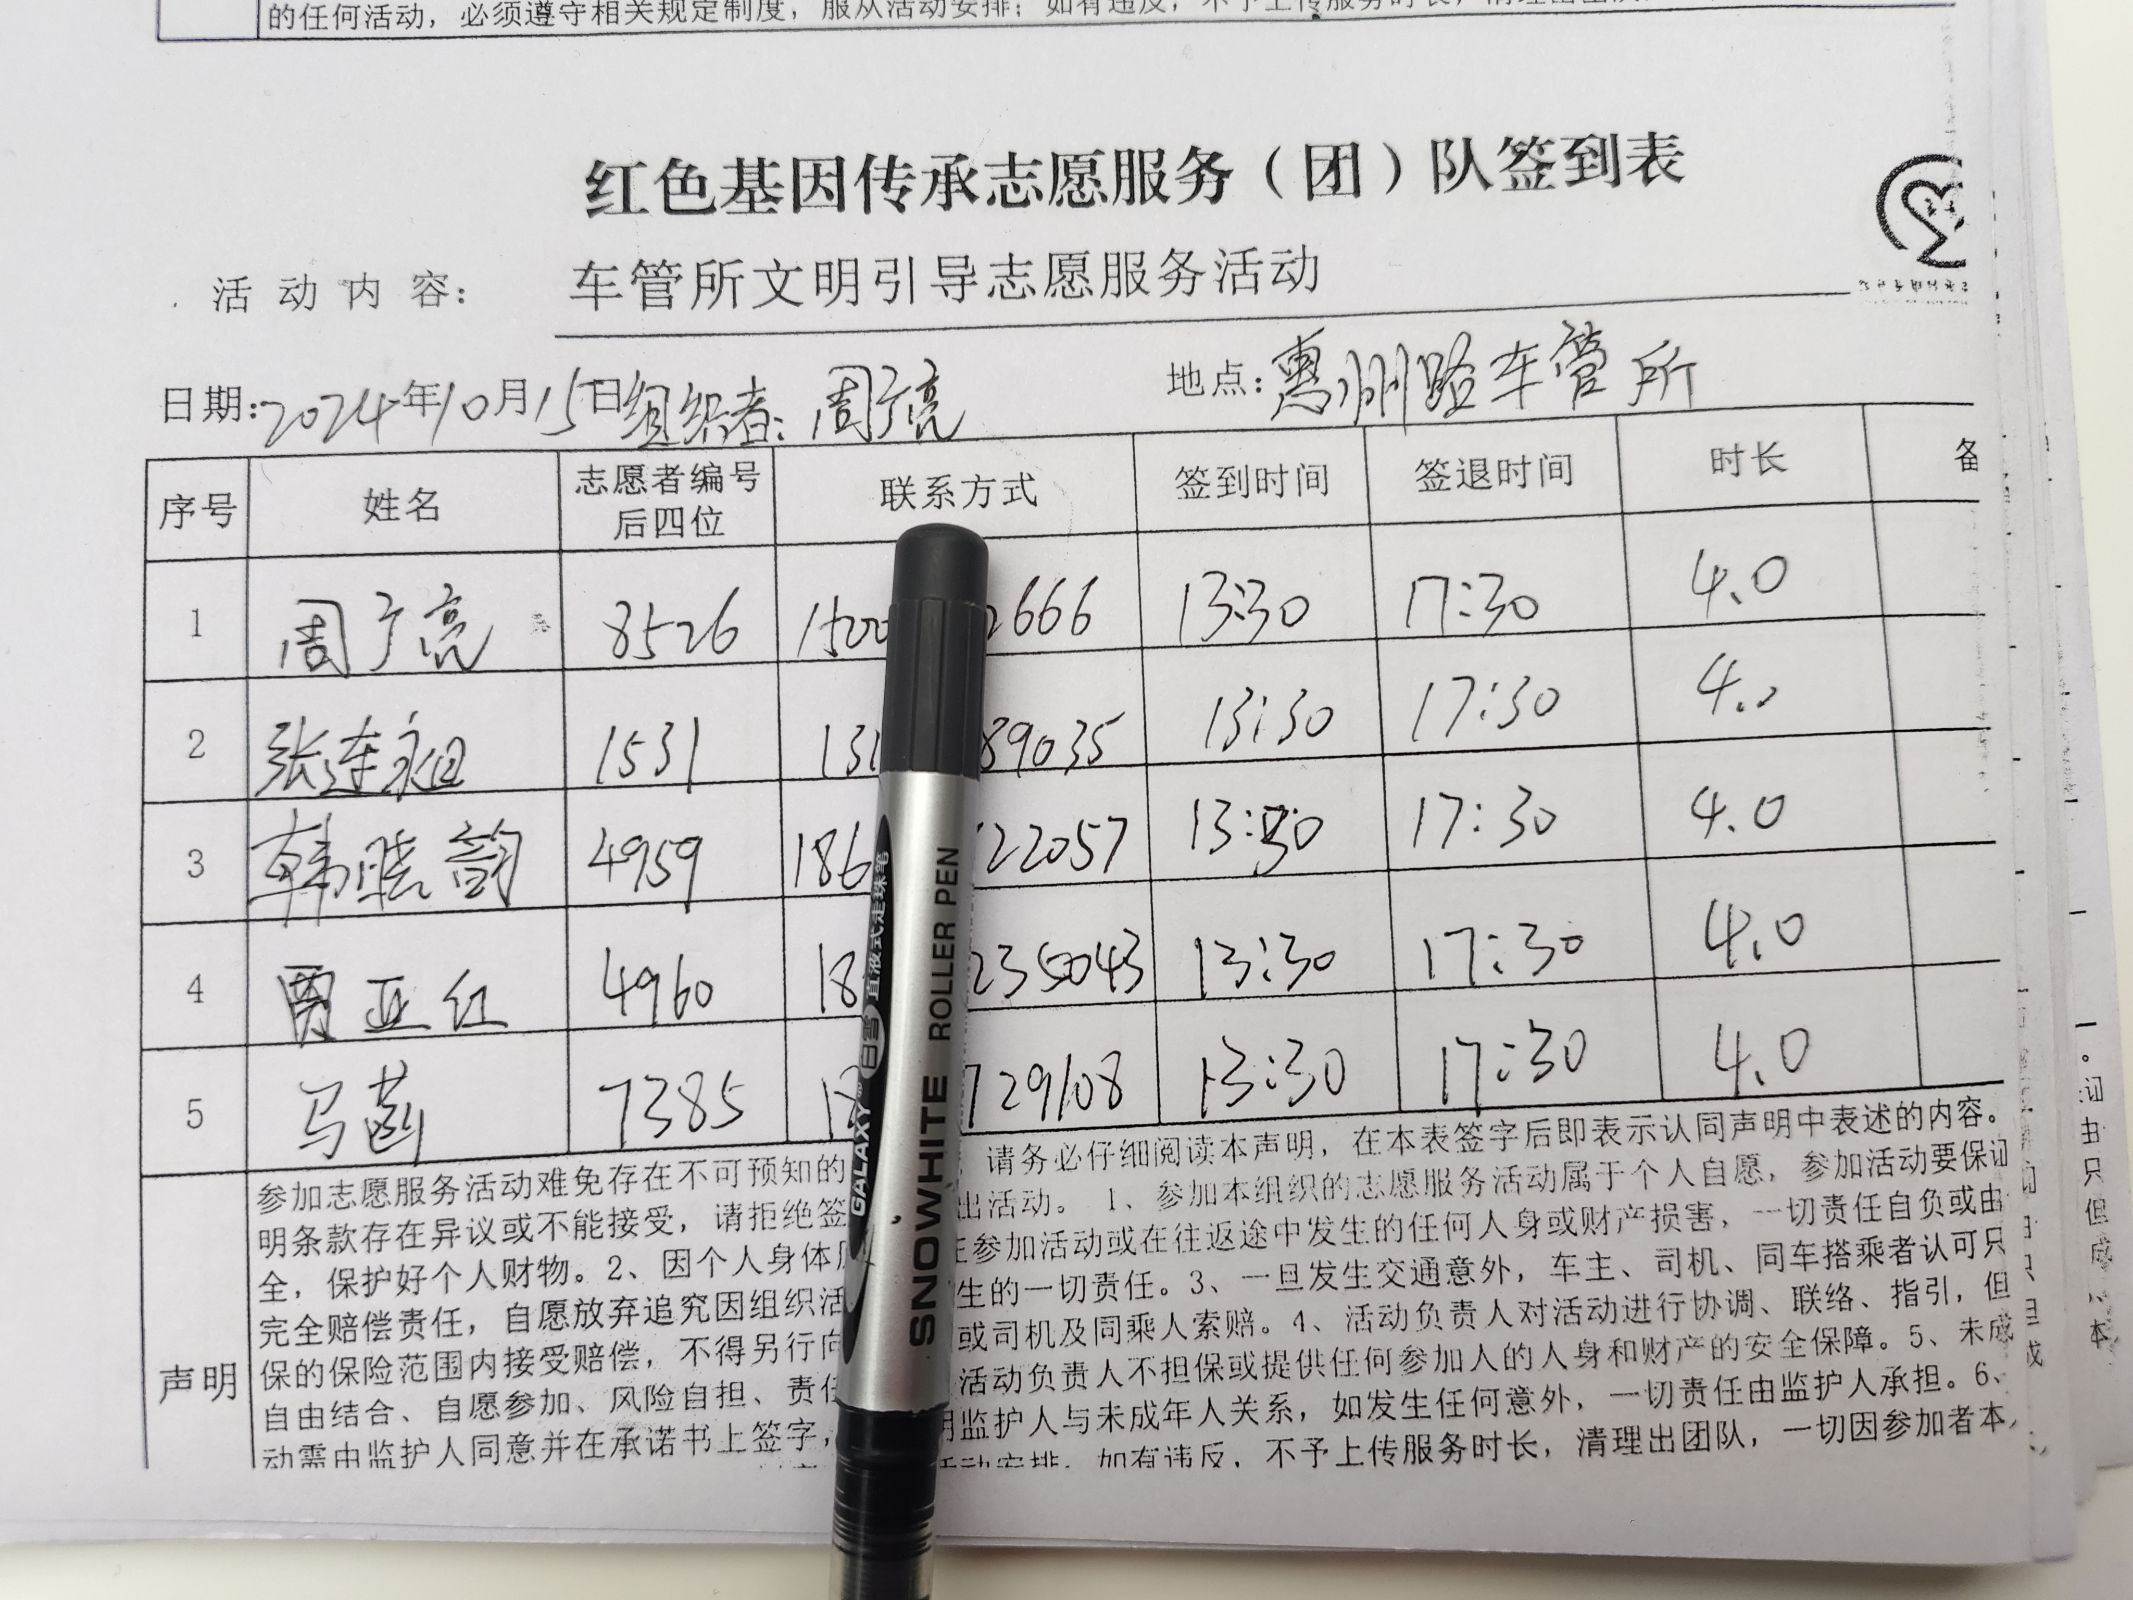 的任何活动，必须遵守相关规定制度，服从活动安排；如有违反，不予上传服务时长，清理出团队
红色基因传承志愿服务（团）队签到表
活动内容： 车管所文明引导志愿服务活动
日期:2024年10月15日 组织者: 周广亮 地点:惠州路车管所
序号 姓名 志愿者编号后四位 联系方式 签到时间 签退时间 时长 备
1 周广亮 8526 1500 2666 13:30 17:30 4.0
2 张连永 1531 131 89035 13:30 17:30 4.0
3 韩晓韵 4959 186 22057 13:30 17:30 4.0
4 贾亚红 4960 18 235043 13:30 17:30 4.0
5 马 7385 729108 13:30 17:30 4.0
声明
参加志愿服务活动难免存在不可预知的 请务必仔细阅读本声明，在本表签字后即表示认同声明中表述的内容。
明条款存在异议或不能接受，请拒绝签 出活动。 1、参加本组织的志愿服务活动属于个人自愿，参加活动要保证
全，保护好个人财物。2、因个人身体 参加活动或在往返途中发生的任何人身或财产损害，一切责任自负或由
完全赔偿责任，自愿放弃追究因组织活 生的一切责任。3、一旦发生交通意外，车主、司机、同车搭乘者认可只
保的保险范围内接受赔偿，不得另行向 或司机及同乘人索赔。4、活动负责人对活动进行协调、联络、指引，但
自由结合、自愿参加、风险自担、责任 活动负责人不担保或提供任何参加人的人身和财产的安全保障。5、未成
动需由监护人同意并在承诺书上签字， 明监护人与未成年人关系，如发生任何意外，一切责任由监护人承担。6、
活动安排，如有违反，不予上传服务时长，清理出团队，一切因参加者本
GALAXY 白雪 直液式走珠笔
SNOWHITE ROLLER PEN